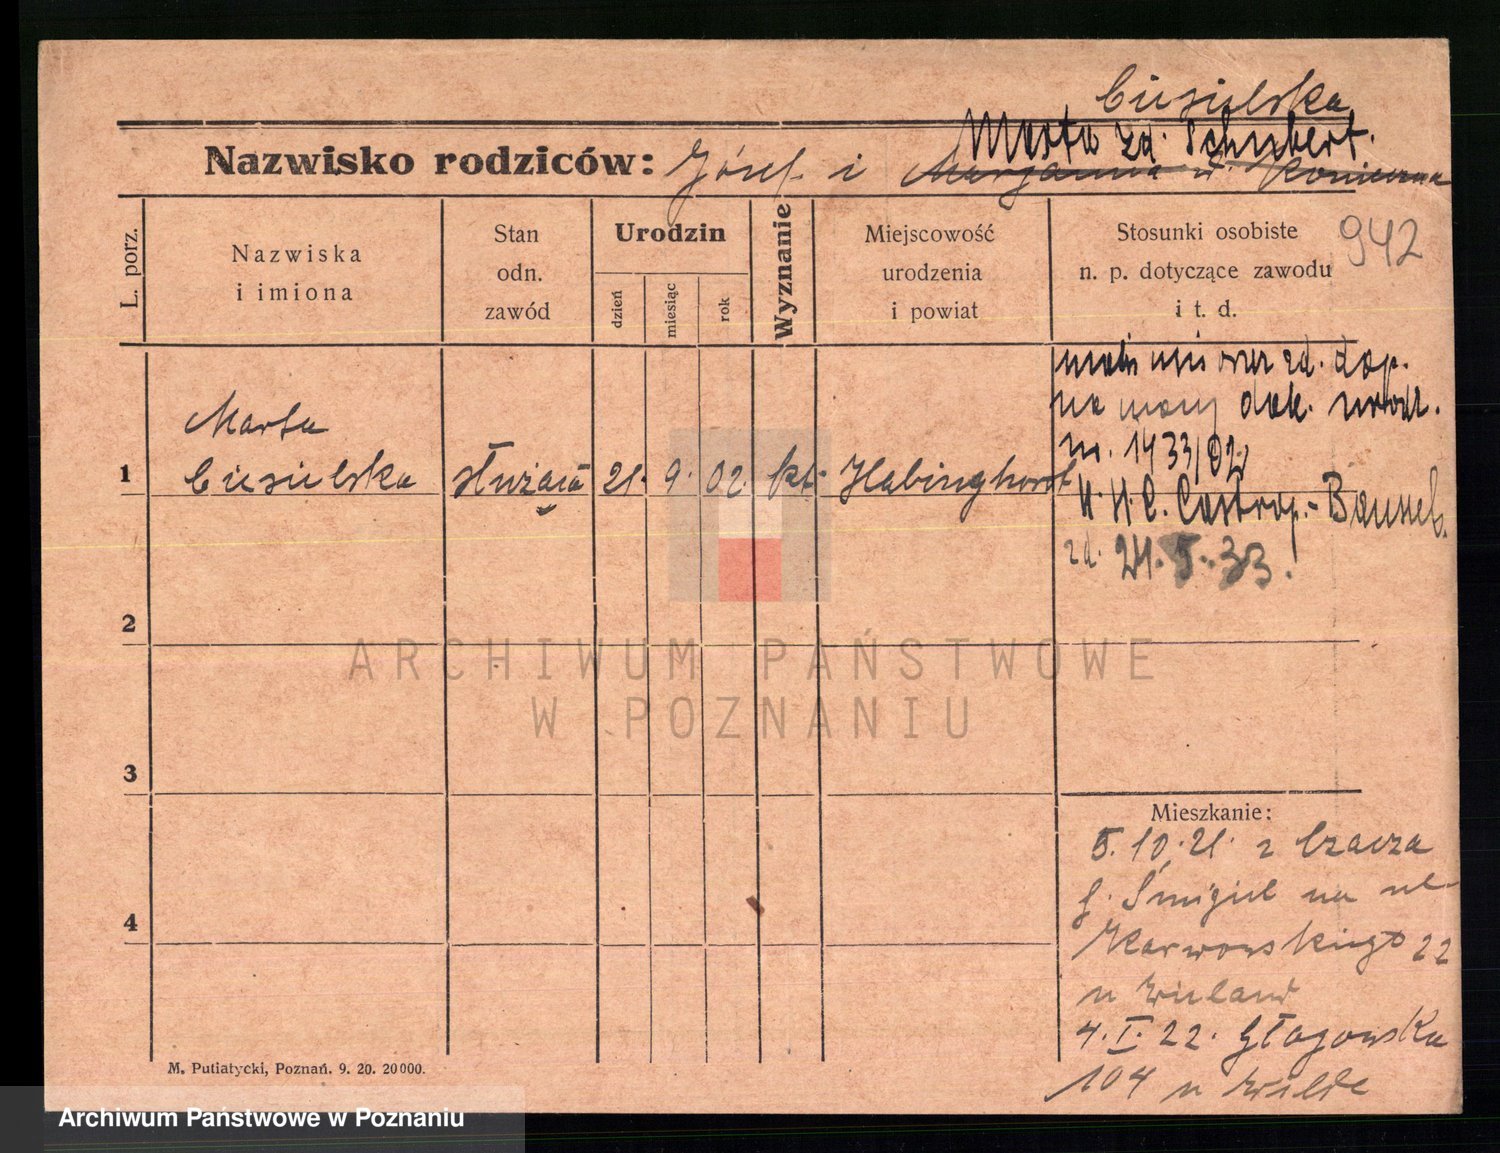 Ciesielska
Marta zd. Schubert.
Nazwisko rodziców: Józef i Marjanna d. Konieczna
L. porz.
Nazwiska
i imiona
Stan
odn.
zawód
Urodzin
dzień
miesiąc
rok
Wyznanie
Miejscowość
urodzenia
i powiat
Stosunki osobiste
n. p. dotyczące zawodu
i t. d.
942
zd. dop.
dok. urodz.
nr. 1433/02
Castrop.-
zd. 24.5.33.
Marta
1 Ciesielska służąca 21. 9. 02. kt. Habinghorst
2
3
4
Mieszkanie:
5.10.21. z Czacza
p. Śmigiel na ul.
Karwowskiego 22
u Wieland
4.I.22. Głogowska
104 u Wilde
M. Putiatycki, Poznań. 9. 20. 20000.
ARCHIWUM PAŃSTWOWE
W POZNANIU
Archiwum Państwowe w Poznaniu